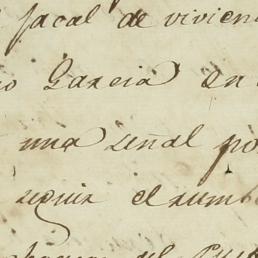 jacal de vivien
o Garcia en
una señal po
seguir el rumb